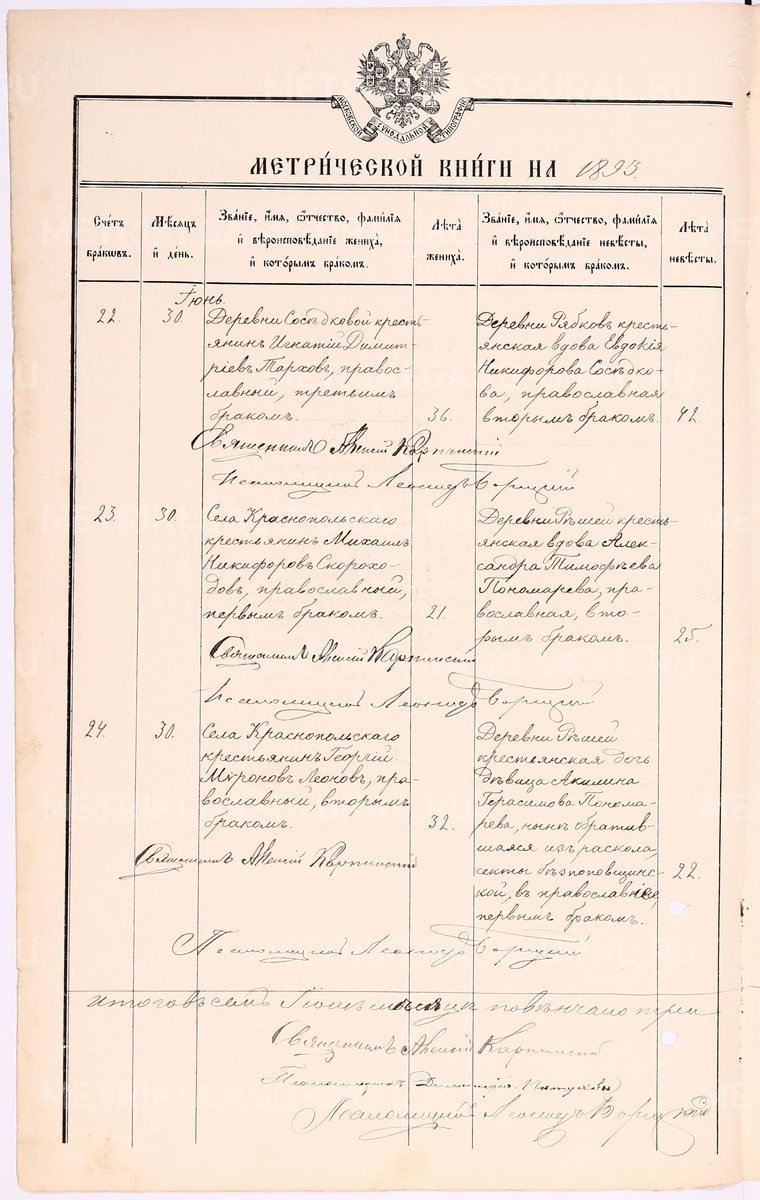 МОСКОВСКОЙ СѴНОДАЛЬНОЙ ТИПОГРАФІИ
МЕТРИ́ЧЕСКОЙ КНИ́ГИ НА 1893.
Счетъ бра́ковъ.
Мѣ́сяцъ и҆ де́нь.
Зва́ніе, и҆́мя, ѻ҆́тчество, фами́лія и҆ вѣроисповѣ́даніе жениха̀, и҆ кото́рымъ бра́комъ.
Лѣ́та жениха̀.
Зва́ніе, и҆́мя, ѻ҆́тчество, фами́лія и҆ вѣроисповѣ́даніе невѣ́сты, и҆ кото́рымъ бра́комъ.
Лѣ́та невѣ́сты.
Іюнь.
22. 30.
Деревни Сосѣдковой кресть-
янинъ Игнатій Димит-
ріевъ Тарховъ, право-
славный, третьимъ
бракомъ. 36.
Деревни Рябковъ кресть-
янская вдова Евдокія
Никифорова Сосѣдко-
ва, православная
вторымъ бракомъ. 42.
Священникъ Алексій Карпинскій
Псаломщикъ Леонидъ
23. 30.
Села Краснопольскаго
крестьянинъ Михаилъ
Никифоровъ Скорохо-
довъ, православный,
первымъ бракомъ. 21.
Деревни Рѣшей кресть-
янская вдова Алек-
сандра Тимофѣева
Пономарева, пра-
вославная, вто-
рымъ бракомъ. 25.
Священникъ Алексій Карпинскій
Псаломщикъ Леонидъ
24. 30.
Села Краснопольскаго
крестьянинъ Георгій
Мѵроновъ Леоновъ, пра-
вославный, вторымъ
бракомъ. 32.
Деревни Рѣшей
крестьянская дочь
дѣвица Акилина
Герасимова Понома-
рева, нынѣ обратив-
шаяся изъ раскола,
секты безпоповщинс-
кой, въ православіе,
первымъ бракомъ. 22.
Священникъ Алексій Карпинскій
Псаломщикъ Леонидъ
Итого въ семъ Іюнѣ мѣсяцѣ повѣнчано три
Священникъ Алексій Карпинскій
Димитрій
Псаломщикъ Леонидъ